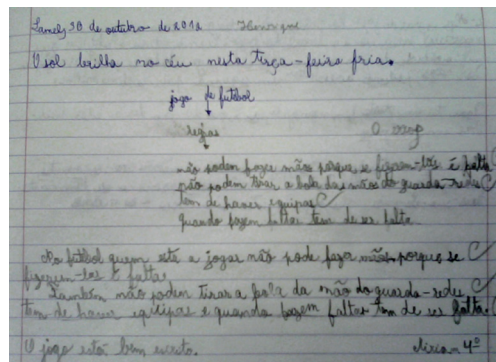 Lamel, 30 de outubro de 2012 Henrique
O sol brilha no céu nesta terça-feira fria.
jogo de futebol
regras
O
não podem fazer mãos porque se fizerem-tos é falta
não podem tirar a bola das mãos do guarda-redes
tem de haver equipas
quando fazem faltas tem de ser falta.
No futebol quem está a jogar não pode fazer mãos, porque se
fizerem-tos é falta.
Também não podem tirar a bola da mão do guarda-redes
tem de haver equipas e quando fazem faltas tem de ser falta.
O jogo está bem escrito. 4º